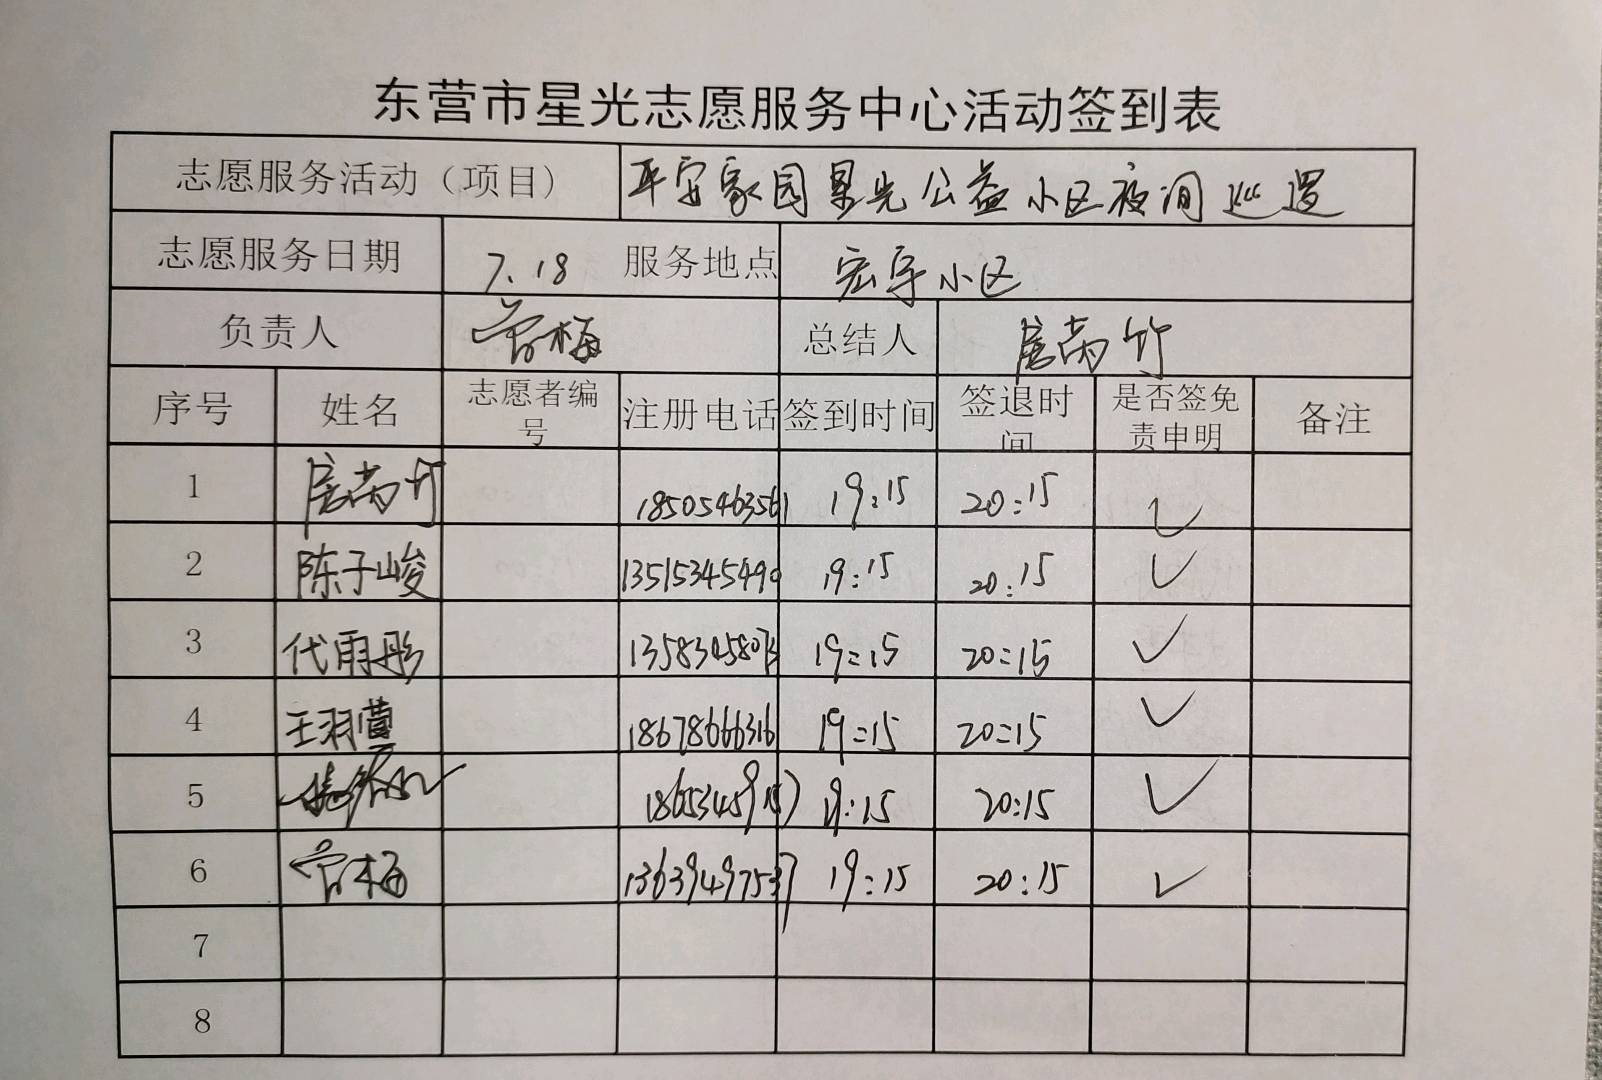 东营市星光志愿服务中心活动签到表
志愿服务活动（项目） 平安家园星光公益小区夜间巡逻
志愿服务日期 7.18 服务地点 宏宇小区
负责人 曾梅 总结人 扈尚竹
序号 姓名 志愿者编号 注册电话 签到时间 签退时间 是否签免责申明 备注
1 扈尚竹 18505463561 19:15 20:15 ✓
2 陈子峻 13515345490 19:15 20:15 ✓
3 代雨彤 19:15 20:15 ✓
4 王羽萱 18678666316 19:15 20:15 ✓
5 19:15 20:15 ✓
6 曾梅 13639497537 19:15 20:15 ✓
7
8